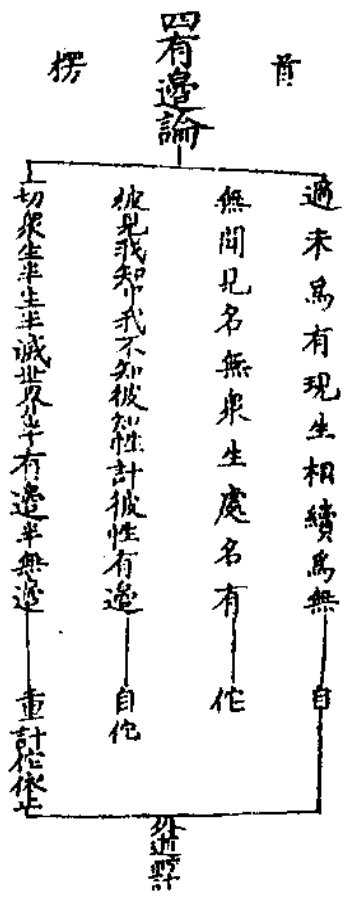 首
楞
四有邊論
過未為有現生相續為無
自
無聞見名無眾生處名有
佗
彼見我知我不知彼知性計彼性有邊
自佗
一切眾生半生半滅世界半有邊半無邊
重計佗依正
外道計